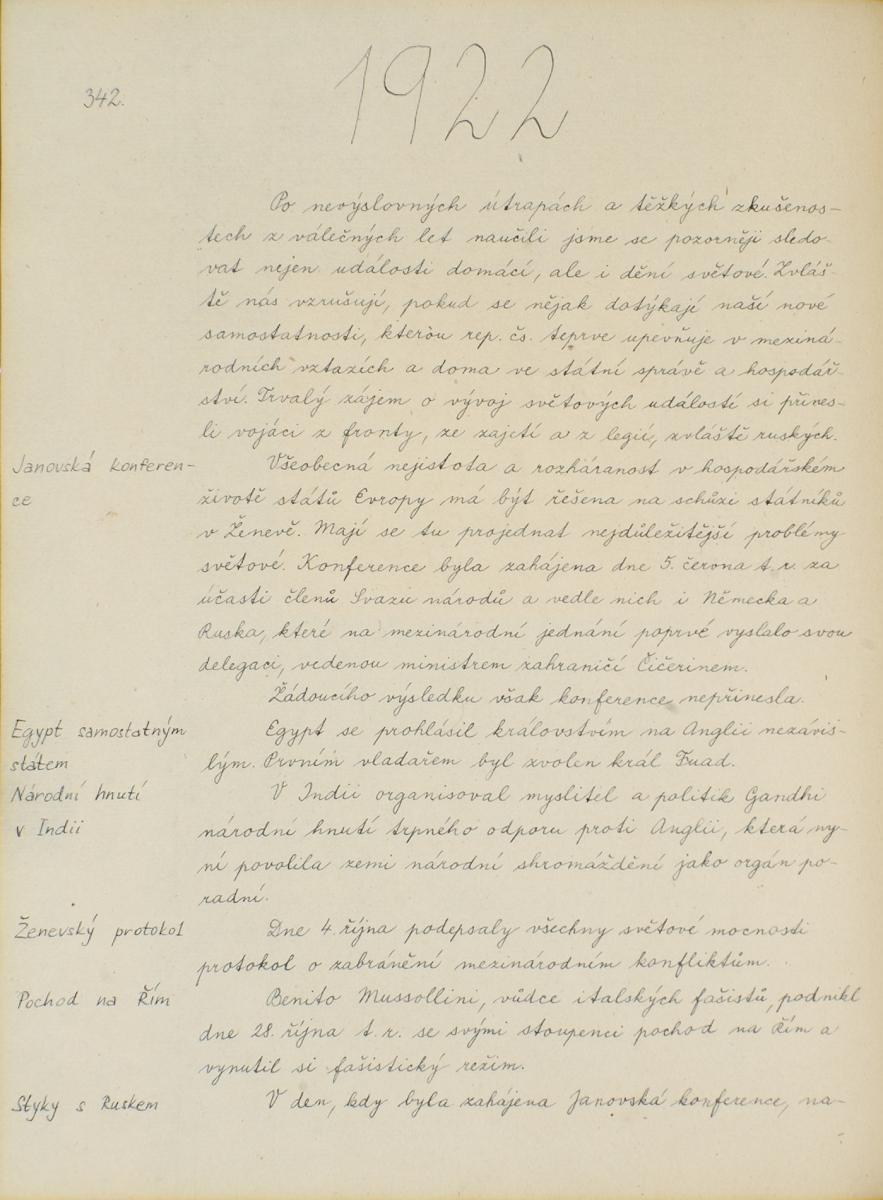 342.
1922
Po nevýslovných útrapách a těžkých zkušenos-
tech z válečných let naučili jsme se pozorněji sledo-
vat nejen události domácí, ale i dění světové. Zvláš-
tě nás vzrušují, pokud se nějak dotýkají naší nové
samostatnosti, kterou rep. čs. teprve upevňuje v meziná-
rodních vztazích a doma ve státní správě a hospodář-
ství. Trvalý zájem o vývoj světových událostí si přines-
li vojáci z fronty, ze zajetí a z legií, zvláště ruských.
Janovská konferen-
ce
Všeobecná nejistota a rozháranost v hospodářském
životě států Evropy má být řešena na schůzi státníků
v Ženevě. Mají se tu projednat nejdůležitější problémy
světové. Konference byla zahájena dne 5. června t. r. za
účasti členů Svazu národů a vedle nich i Německa a
Ruska, které na mezinárodní jednání poprvé vyslalo svou
delegaci, vedenou ministrem zahraničí Čičerinem.
Žádoucího výsledku však konference nepřinesla.
Egypt samostatným
státem
Egypt se prohlásil královstvím na Anglii nezávis-
lým. Prvním vladařem byl zvolen král Fuad.
Národní hnutí
v Indii
V Indii organisoval myslitel a politik Gandhi
národní hnutí trpného odporu proti Anglii, která ny-
ní povolila zemi národní shromáždění jako orgán po-
radní.
Ženevský protokol
Dne 4. října podepsaly všechny světové mocnosti
protokol o zabránění mezinárodním konfliktům.
Pochod na Řím
Benito Mussollini, vůdce italských fašistů, podnikl
dne 28. října t. r. se svými stoupenci pochod na Řím a
vynutil si fašistický režim.
Styky s Ruskem
V den, kdy byla zahájena Janovská konference, na-